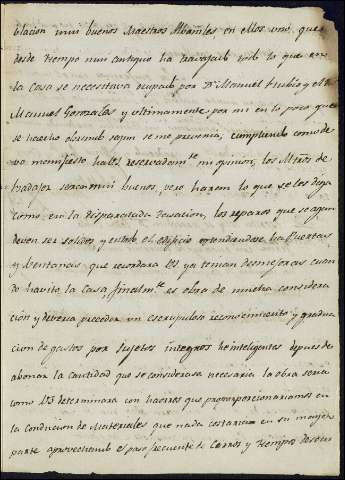 blacion mui buenos Maestros Albañiles en ellos uno, que
desde tiempo mui antiguo ha travajado todo lo que en
la Casa se necesitava ocupado por Dn Manuel Rubio y el
Manuel Gonzalas y ultimamente por mi en lo poco que
se hecho obrando segun se me prevenia, cumpliendo como de
vo manifiesto ha Vs. reservadamte mi opinion, los Mros de
trabajar seran mui buenos, pero haran lo que se les deja
como, en la disparatada tasacion, los reparos que se agan
deven ser solidos y en todo el edificio estendiendose ha Puertas
y Ventanas que recordara Vs ya tenian desmejoras cuan
do havito la Casa, finalmte es obra de mucha considera
cion y deveria preceder un escrupuloso reconocimiento y gradua
cion de gastos por sujetos integros he inteligentes despues de
abonar la cantidad que se considerase necesaria la obra seria
como VS determinara con haorros que proporcionariamos en
la conducion de Materiales que nada costarian en su mayor
parte aprovechando el paso frecuente de Carros y tiempos